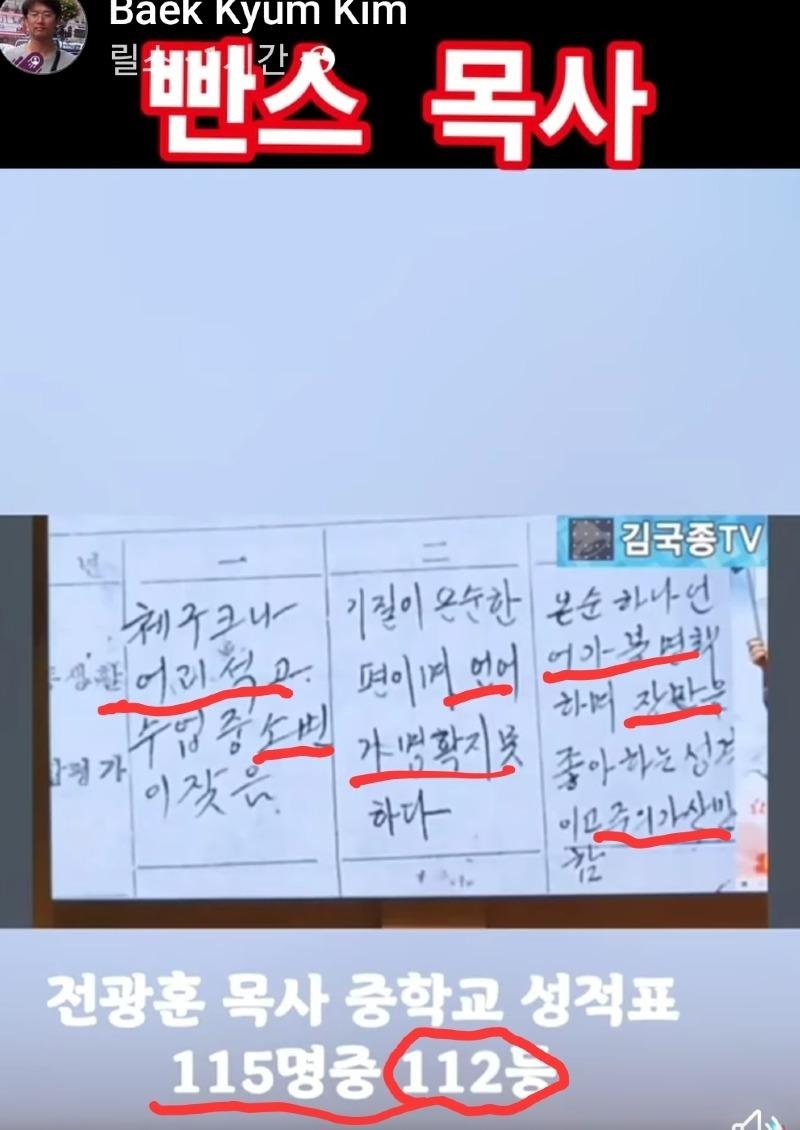 Baek Kyum Kim
릴스 · 1시간
빤스 목사
김국종TV
년
一
二
체구크나
어리석고
수업중소변
이잦음
기질이온순한
편이며 언어
가명확지못
하다
온순하나언
어가불명확
하며 장난을
좋아하는성격
이고주의가산만
함
평가
전광훈 목사 중학교 성적표
115명중 112등